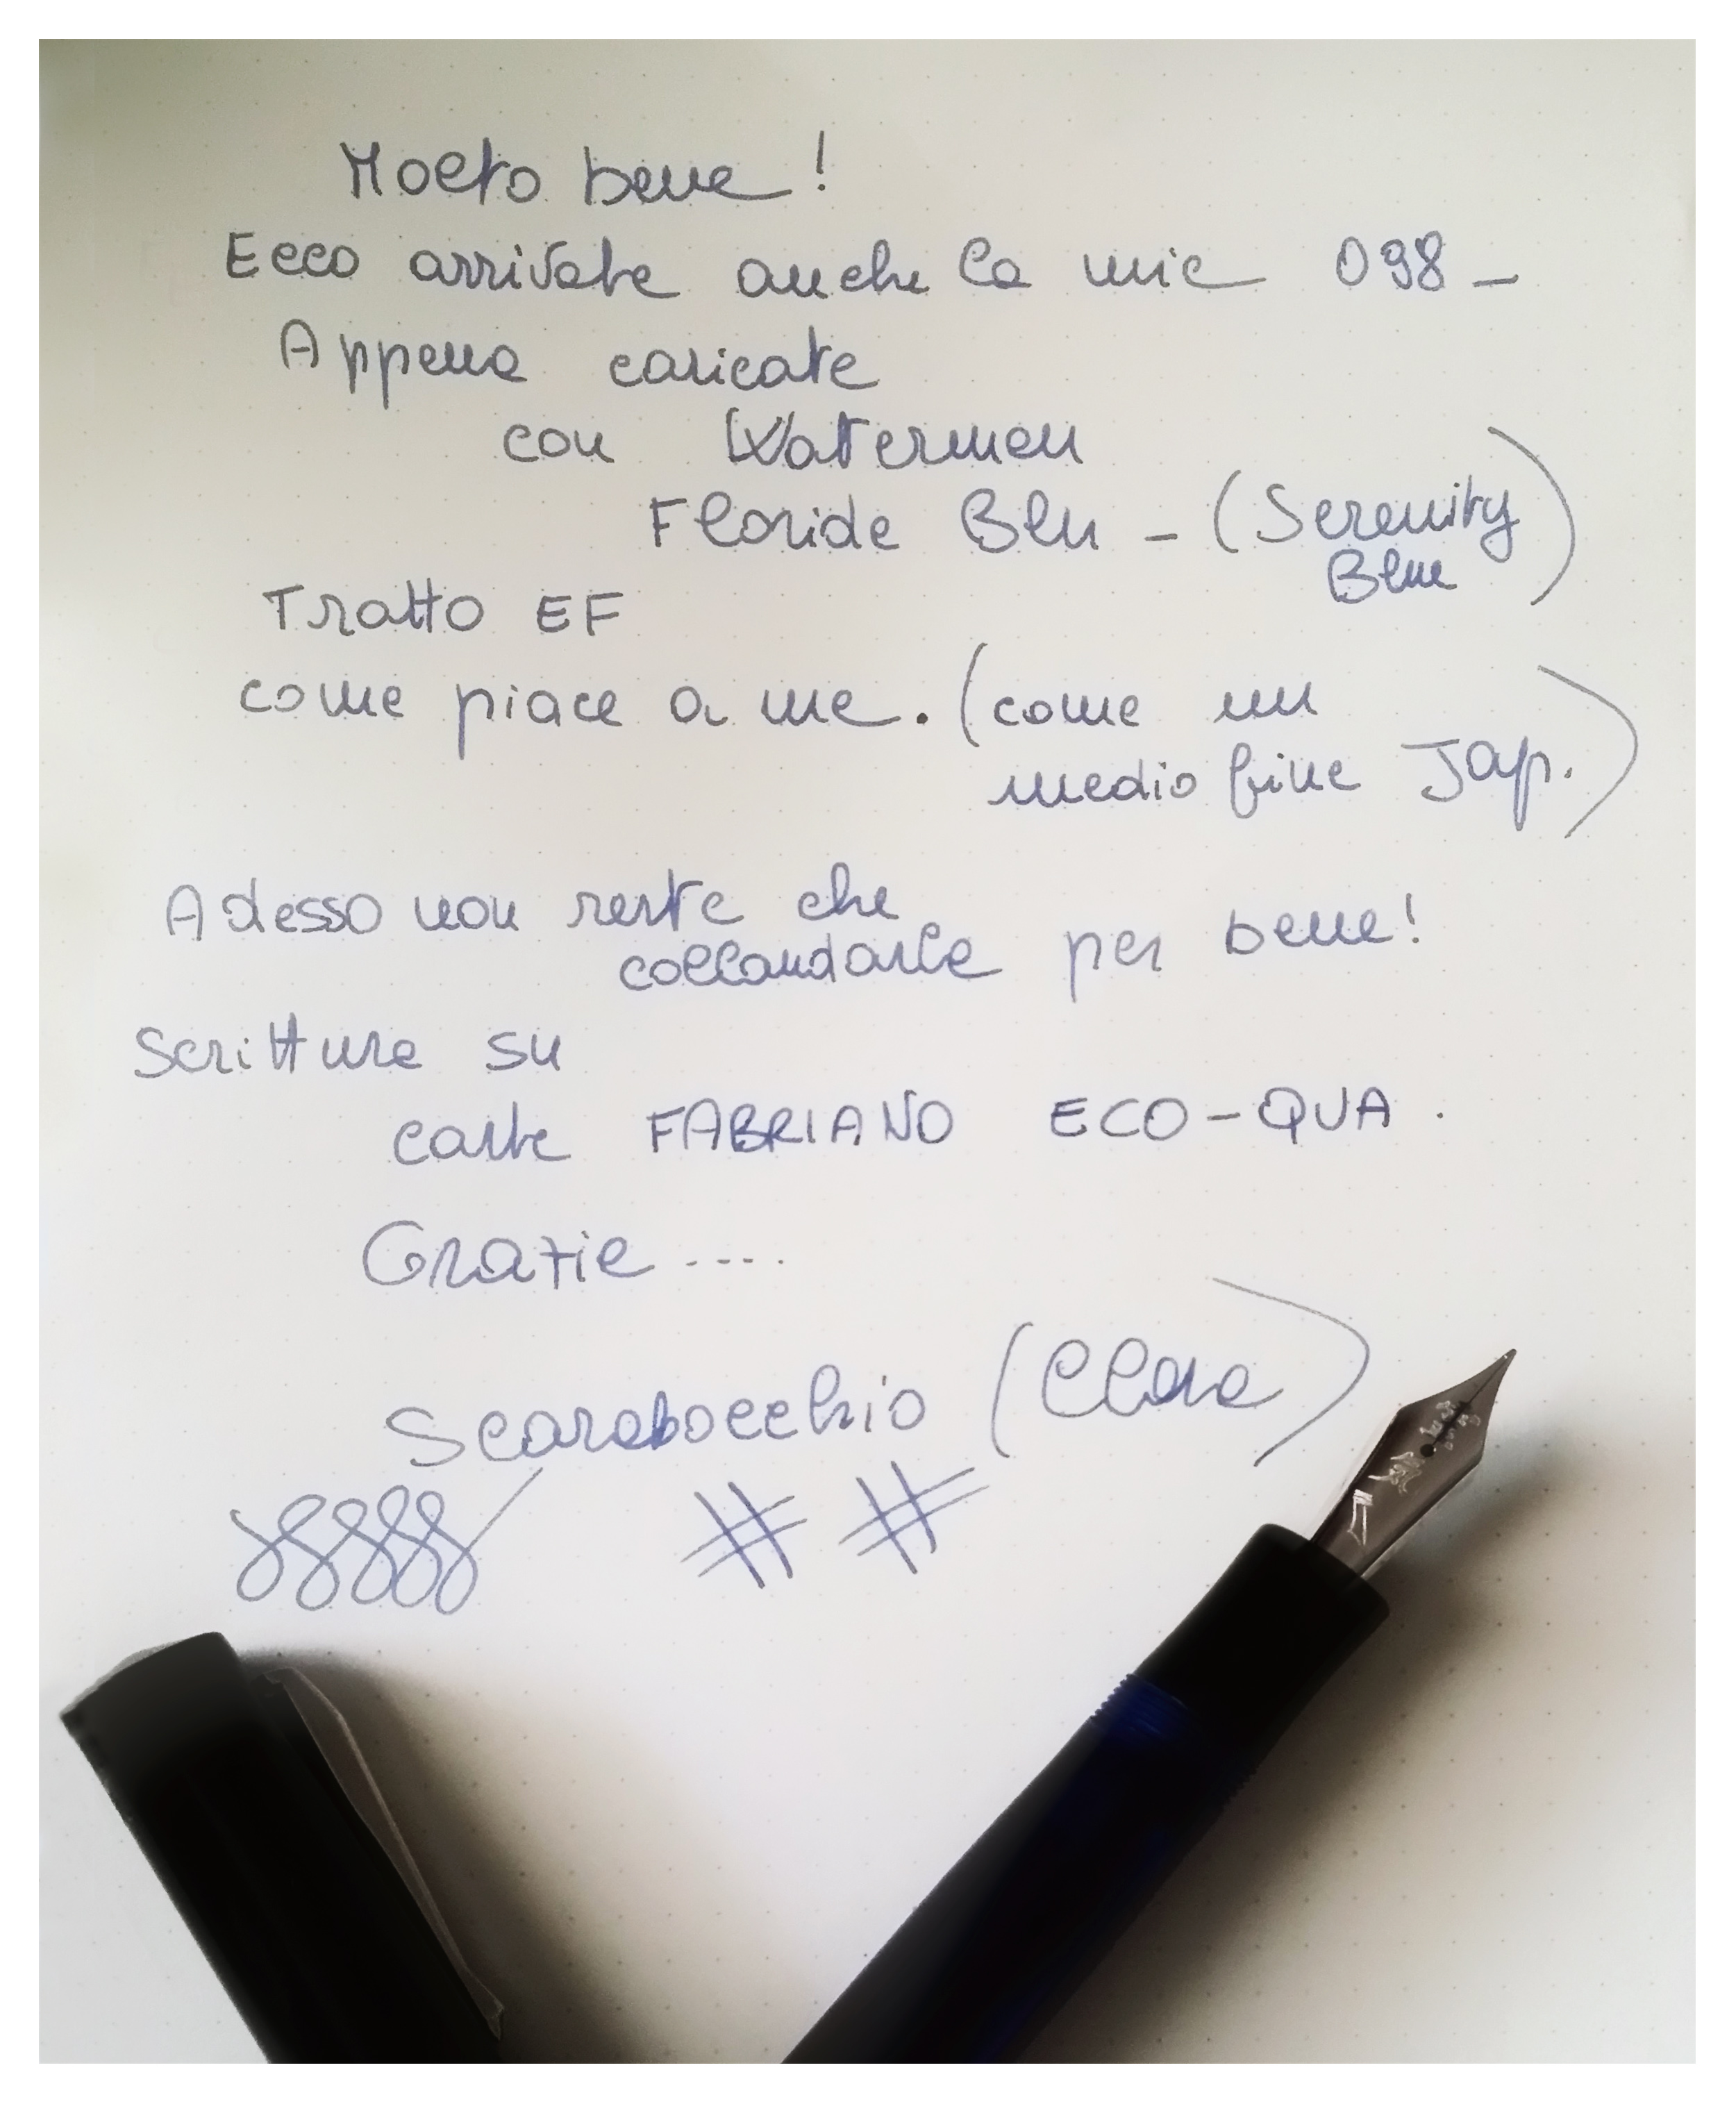 Molto bene!
Ecco arrivata anche la mia 098 -
Appena caricata
con Waterman
Floride Blu - (Serenity
Blue)
Tratto EF
come piace a me. (come un
medio fine Jap.)
Adesso non resta che
collaudarla per bene!
Scrittura su
carta FABRIANO ECO-QUA.
Grazie ....
Scarabocchio (Clara)
# #